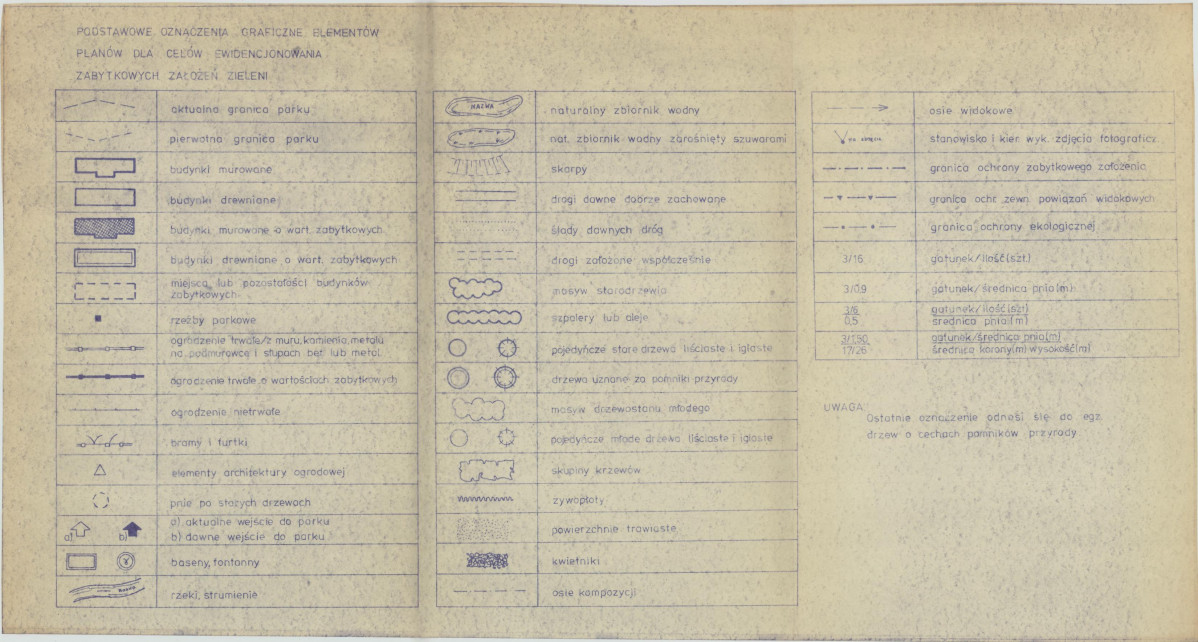 PODSTAWOWE OZNACZENIA GRAFICZNE ELEMENTÓW
PLANÓW DLA CELÓW EWIDENCJONOWANIA
ZABYTKOWYCH ZAŁOŻEŃ ZIELENI
aktualna granica parku
pierwotna granica parku
budynki murowane
budynki drewniane
budynki murowane o wart. zabytkowych
budynki drewniane o wart. zabytkowych
miejsca lub pozostałości budynków
zabytkowych
rzeźby parkowe
ogrodzenie trwałe/z muru, kamienia, metalu
na podmurówce i słupach bet. lub metal.
ogrodzenie trwałe o wartościach zabytkowych
ogrodzenie nietrwałe
bramy i furtki
elementy architektury ogrodowej
pnie po starych drzewach
a) b) a) aktualne wejście do parku
b) dawne wejście do parku
baseny, fontanny
rzeki, strumienie
NAZWA naturalny zbiornik wodny
nat. zbiornik wodny zarośnięty szuwarami
skarpy
drogi dawne dobrze zachowane
ślady dawnych dróg
drogi założone współcześnie
masyw starodrzewia
szpalery lub aleje
pojedyńcze stare drzewa liściaste i iglaste
drzewa uznane za pomniki przyrody
masyw drzewostanu młodego
pojedyńcze młode drzewa liściaste i iglaste
skupiny krzewów
żywopłoty
powierzchnie trawiaste
kwietniki
osie kompozycji
osie widokowe
stanowisko i kier. wyk. zdjęcia fotograficz.
granica ochrony zabytkowego założenia
granica ochr. zewn. powiązań widokowych
granica ochrony ekologicznej
3/16 gatunek/ilość(szt.)
3/0,9 gatunek/średnica pnia(m)
3/6 gatunek/ilość(szt)
0,5 średnica pnia(m)
3/1,50 gatunek/średnica pnia(m)
17/26 średnica korony(m) wysokość(m)
UWAGA:
Ostatnie oznaczenie odnosi się do egz.
drzew o cechach pomników przyrody.